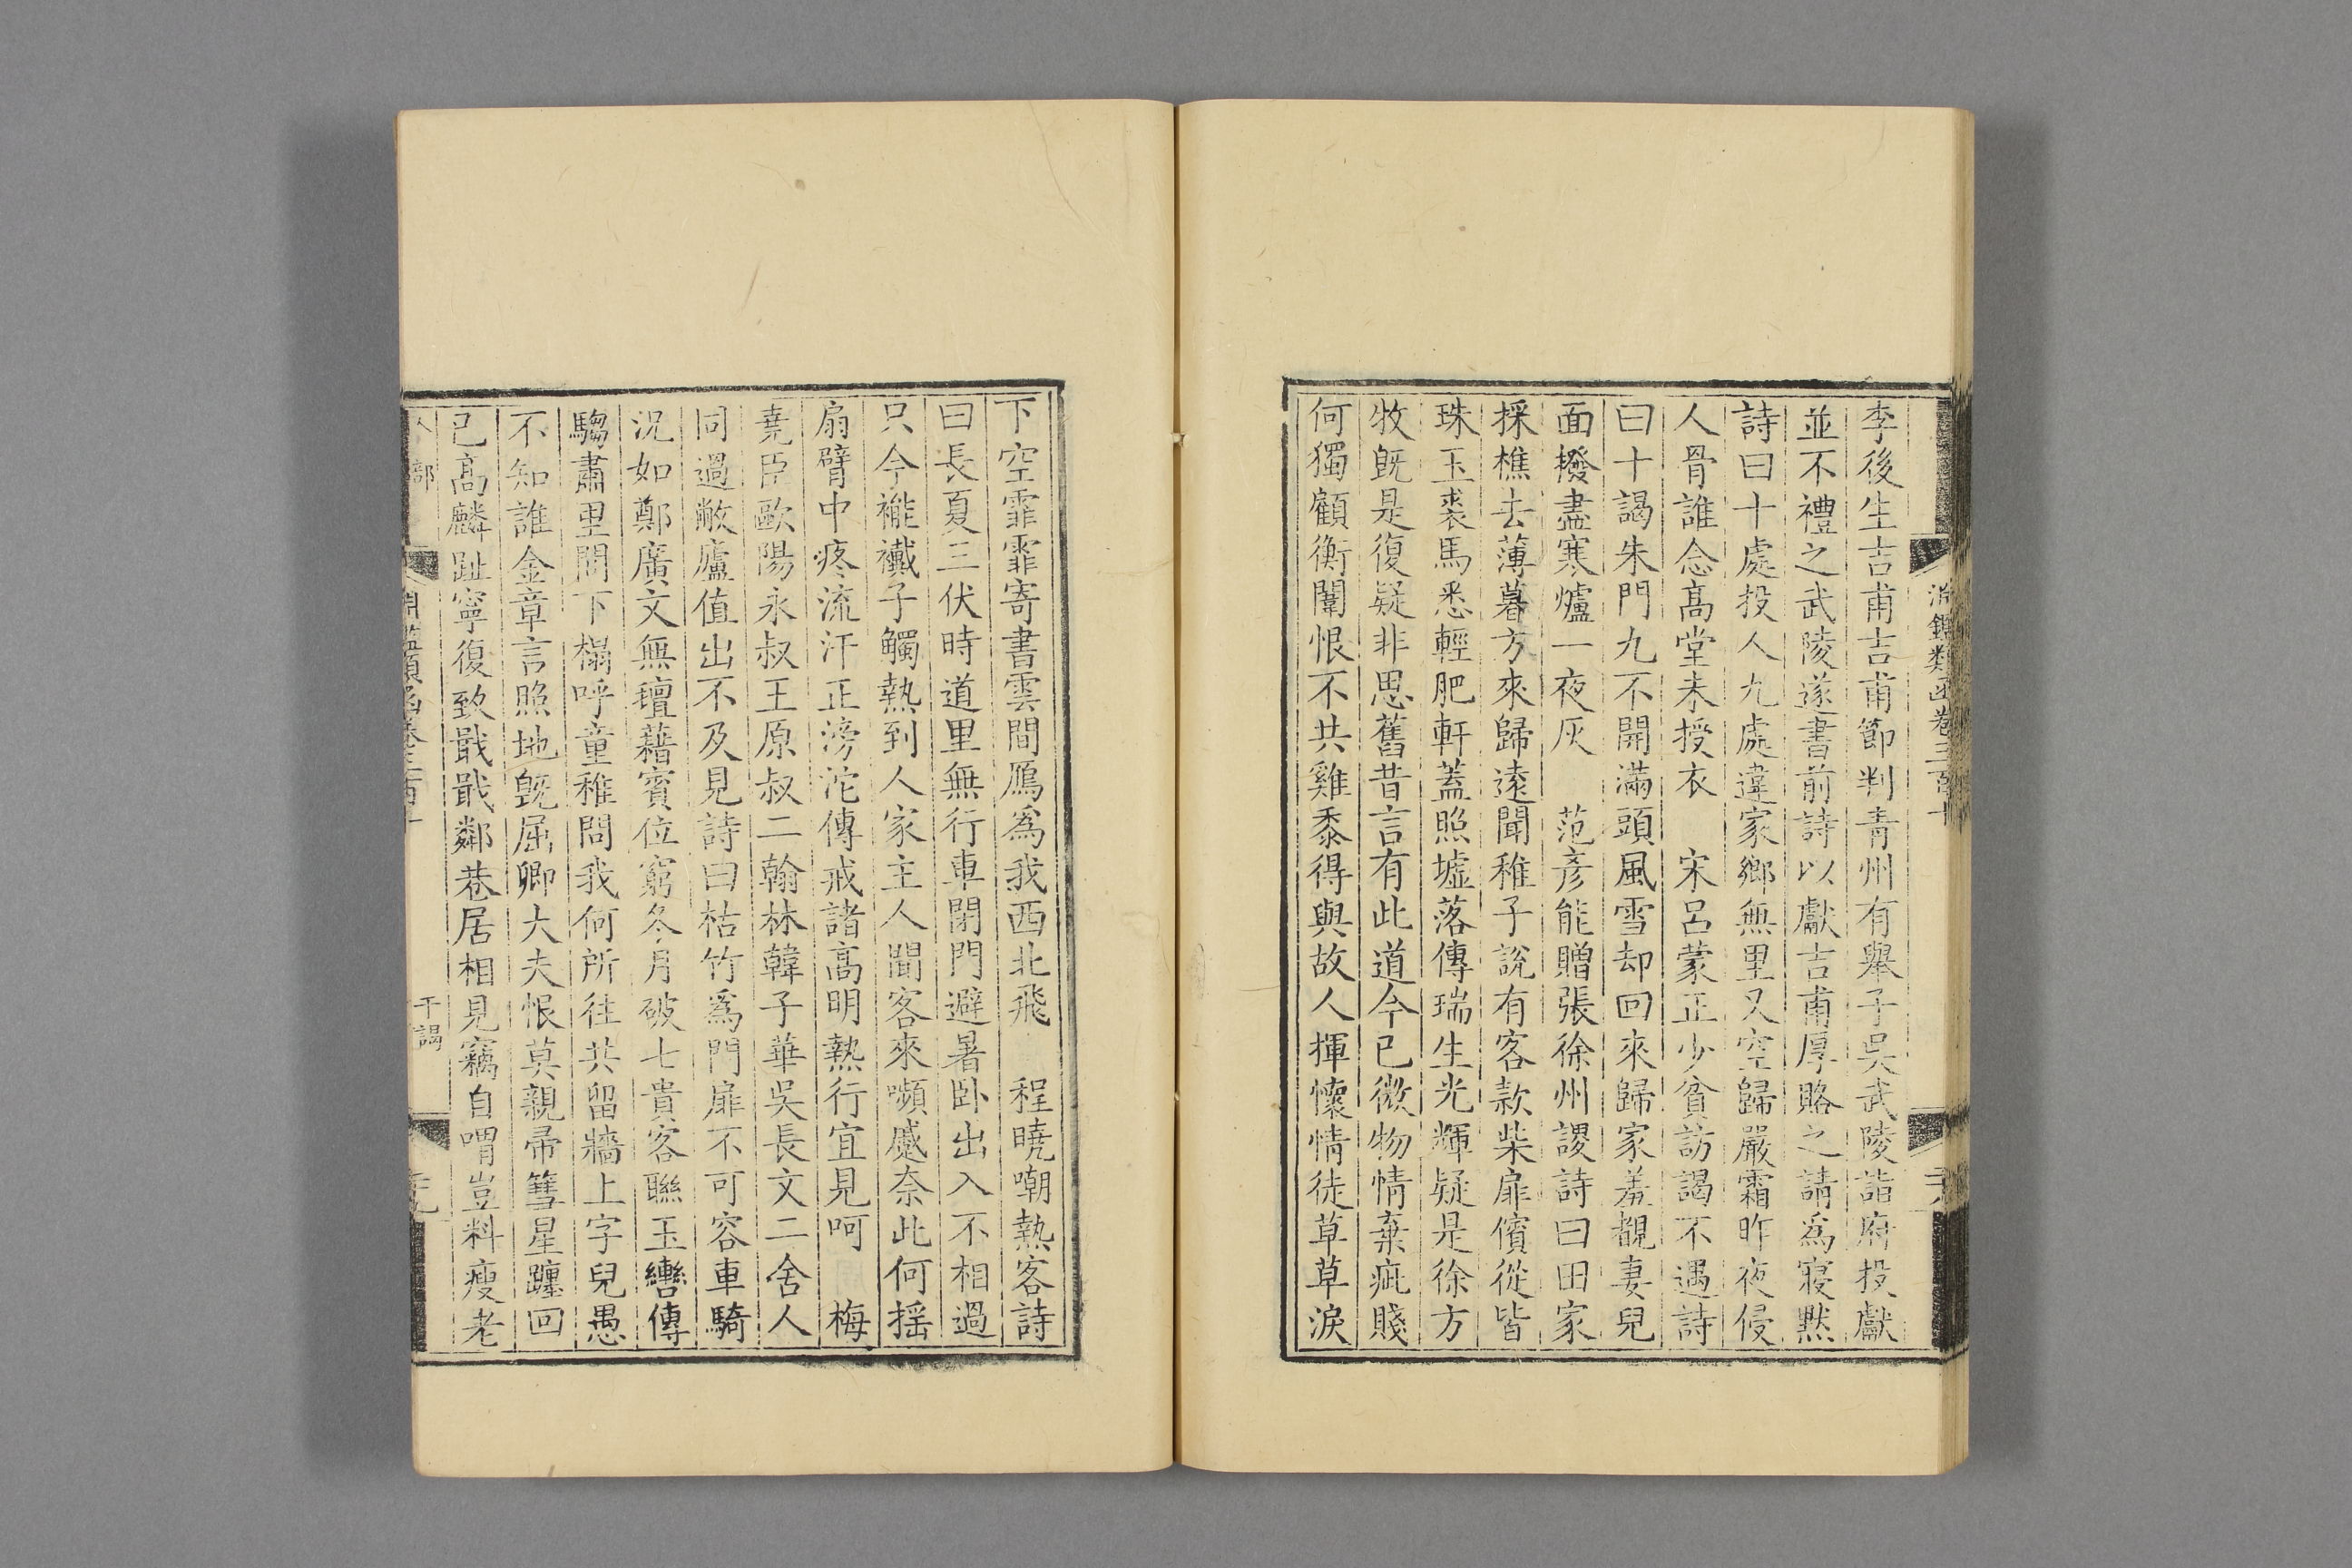 淵鑑類函卷三百十
李後生吉甫吉甫節判青州有舉子吳武陵詣府投獻
並不禮之武陵遂書前詩以獻吉甫厚賂之請爲寢默
詩曰十處投人九處違家鄉無里又空歸嚴霜昨夜侵
人骨誰念高堂未授衣　宋呂蒙正少貧訪謁不遇詩
曰十謁朱門九不開滿頭風雪却回來歸家羞覩妻兒
面撥盡寒爐一夜灰　范彥能贈張徐州謖詩曰田家
採樵去薄暮方來歸遠聞稚子說有客款柴扉儐從皆
珠玉裘馬悉輕肥軒蓋照墟落傳瑞生光輝疑是徐方
牧旣是復疑非思舊昔言有此道今已微物情棄疵賤
何獨顧衡闈恨不共雞黍得與故人揮懷情徒草草淚
下空霏霏寄書雲間鴈爲我西北飛　程曉嘲熱客詩
曰長夏三伏時道里無行車閉門避暑卧出入不相過
只今襬襶子觸熱到人家主人聞客來嚬蹙奈此何搖
扇臂中疼流汗正滂沱傳戒諸高明熱行宜見呵　梅
堯臣歐陽永叔王原叔二翰林韓子華吳長文二舍人
同過敝廬值出不及見詩曰枯竹爲門扉不可容車騎
況如鄭廣文無氊藉賓位窮冬月破七貴客聯玉轡傳
騶肅里閭下榻呼童稚問我何所往共留牆上字兒愚
不知誰金章言照地旣屈卿大夫恨莫親帚篲星躔回
已高麟趾寧復致戢戢鄰巷居相見竊自喟豈料瘦老
人部　淵鑑類函卷三百十　干謁